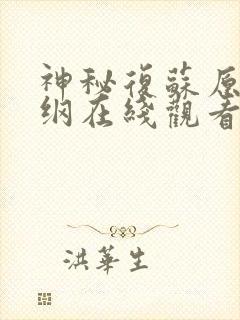 神秘復蘇原
纲在綫觀看
洪華生